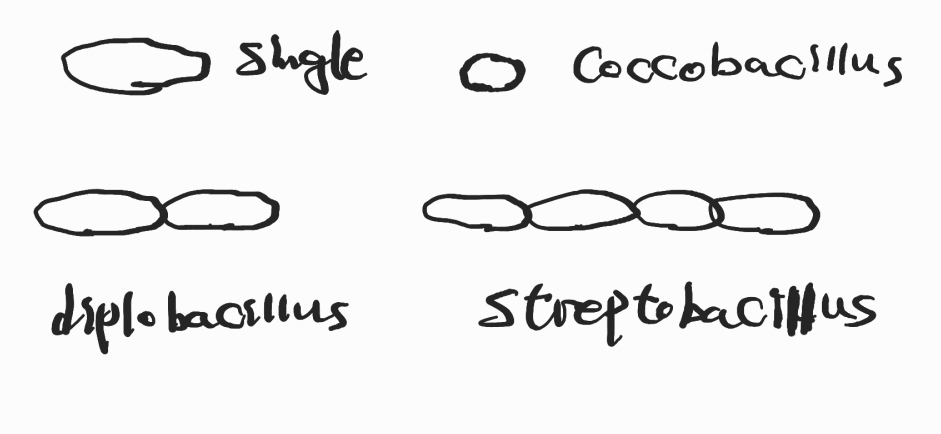 Single
Coccobacillus
diplobacillus
Streptobacillus